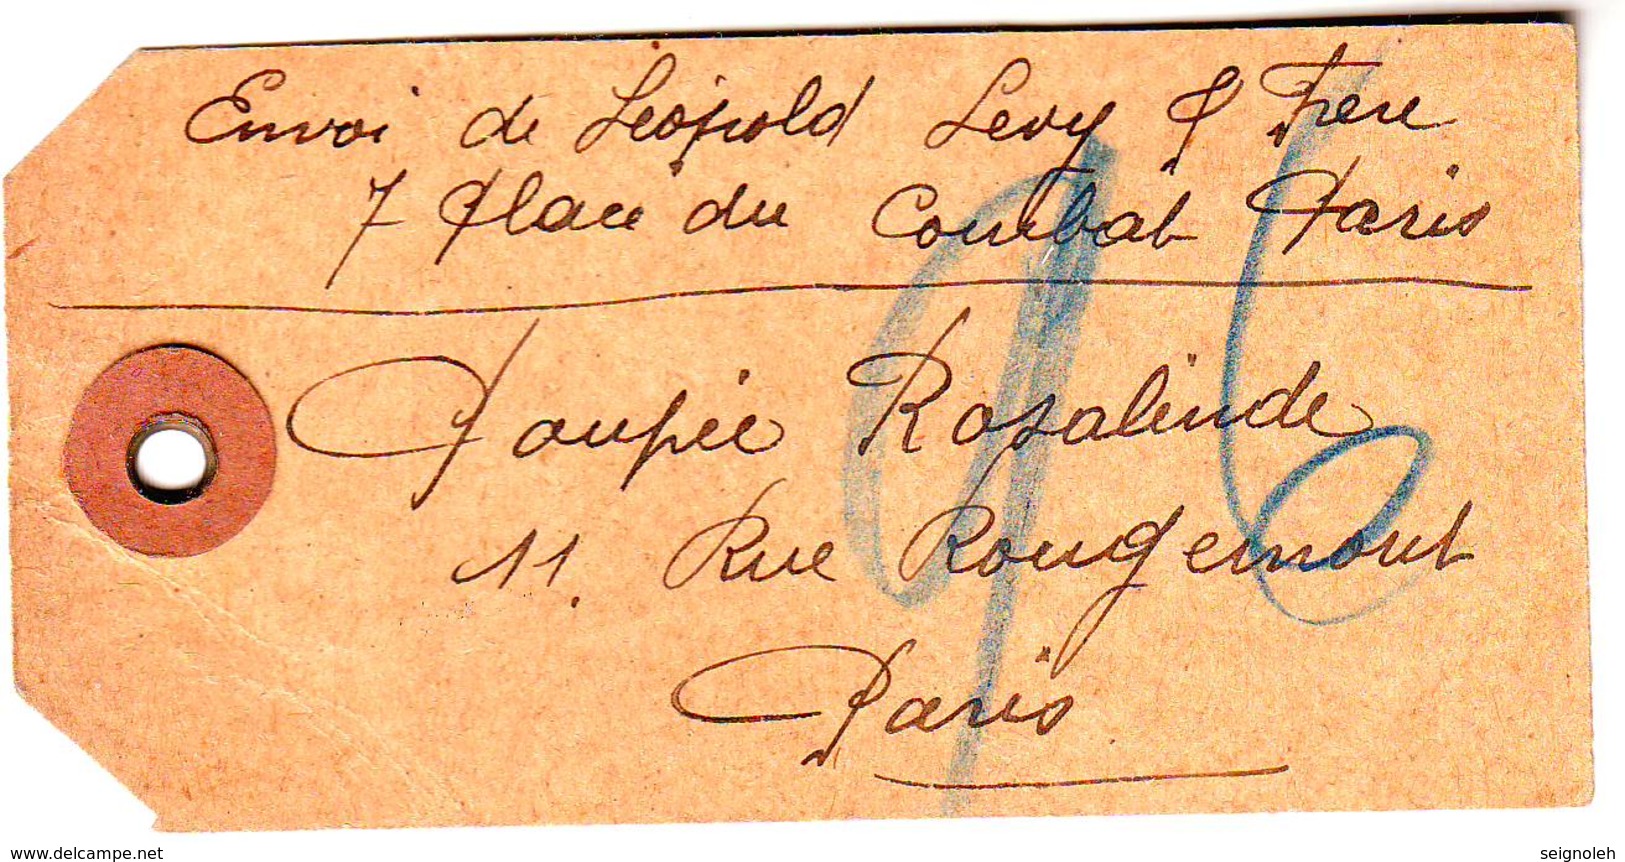 Envoi de Léopold Levy & Frère
7 Place du Combat Paris
Poupée Rosalinde
11. Rue Rougemont
Paris
96
www.delcampe.net
seignoleh